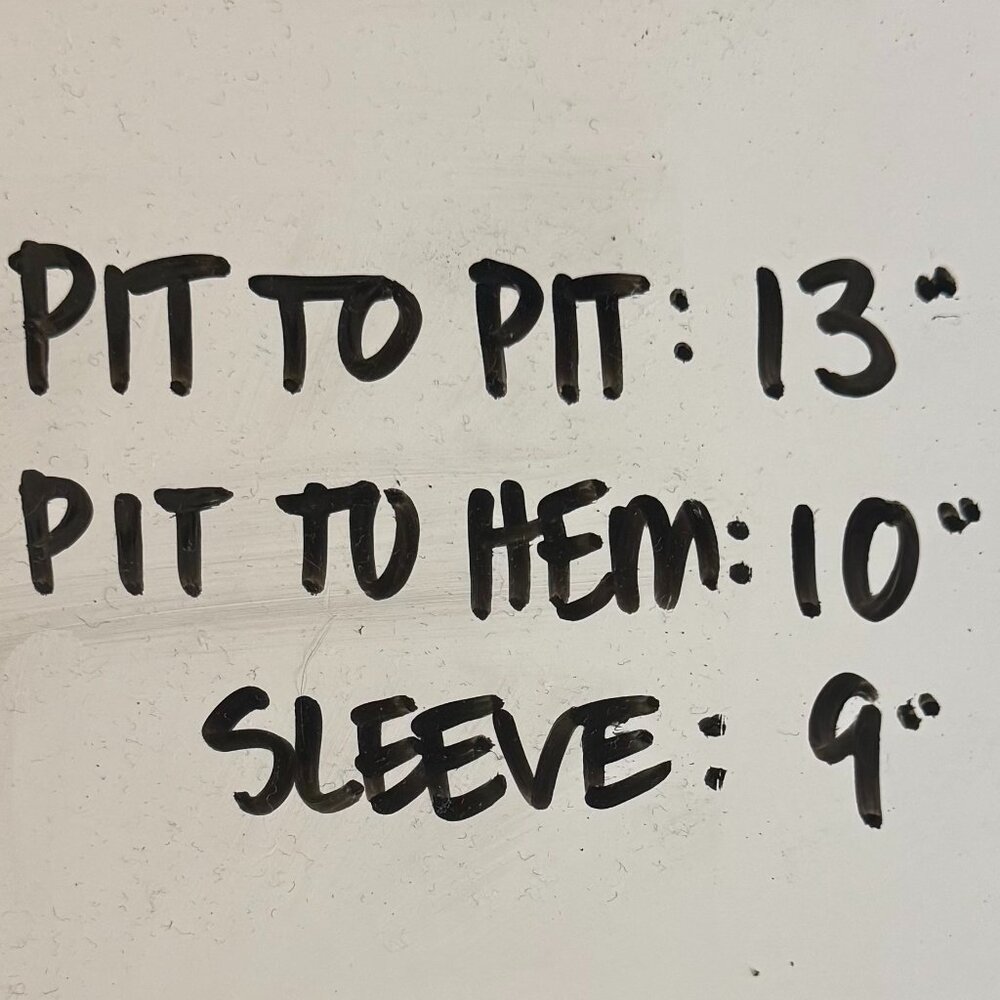 PIT TO PIT: 13"
PIT TO HEM: 10"
SLEEVE: 9"